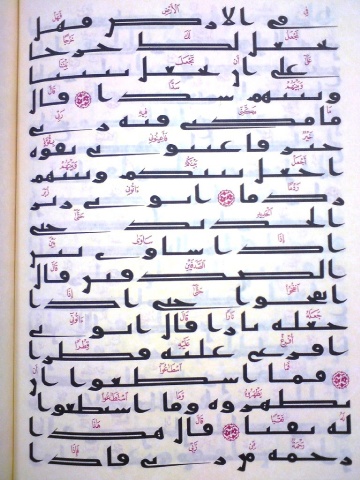 في الارض فهل
نجعل لك خرجا
على ان تجعل بيننا
وبينهم سدا ۝ قال
ما مكني فيه ربي
خير فاعينوني بقوة
اجعل بينكم وبينهم
ردما ۝ اتوني زبر
الحديد حتى
اذا ساوى بين
الصدفين قال
انفخوا حتى اذا
جعله نارا قال اتوني
افرغ عليه قطرا
۝ فما اسطعوا ان
يظهروه وما استطعوا
له نقبا ۝ قال هذا
رحمة من ربي فاذا